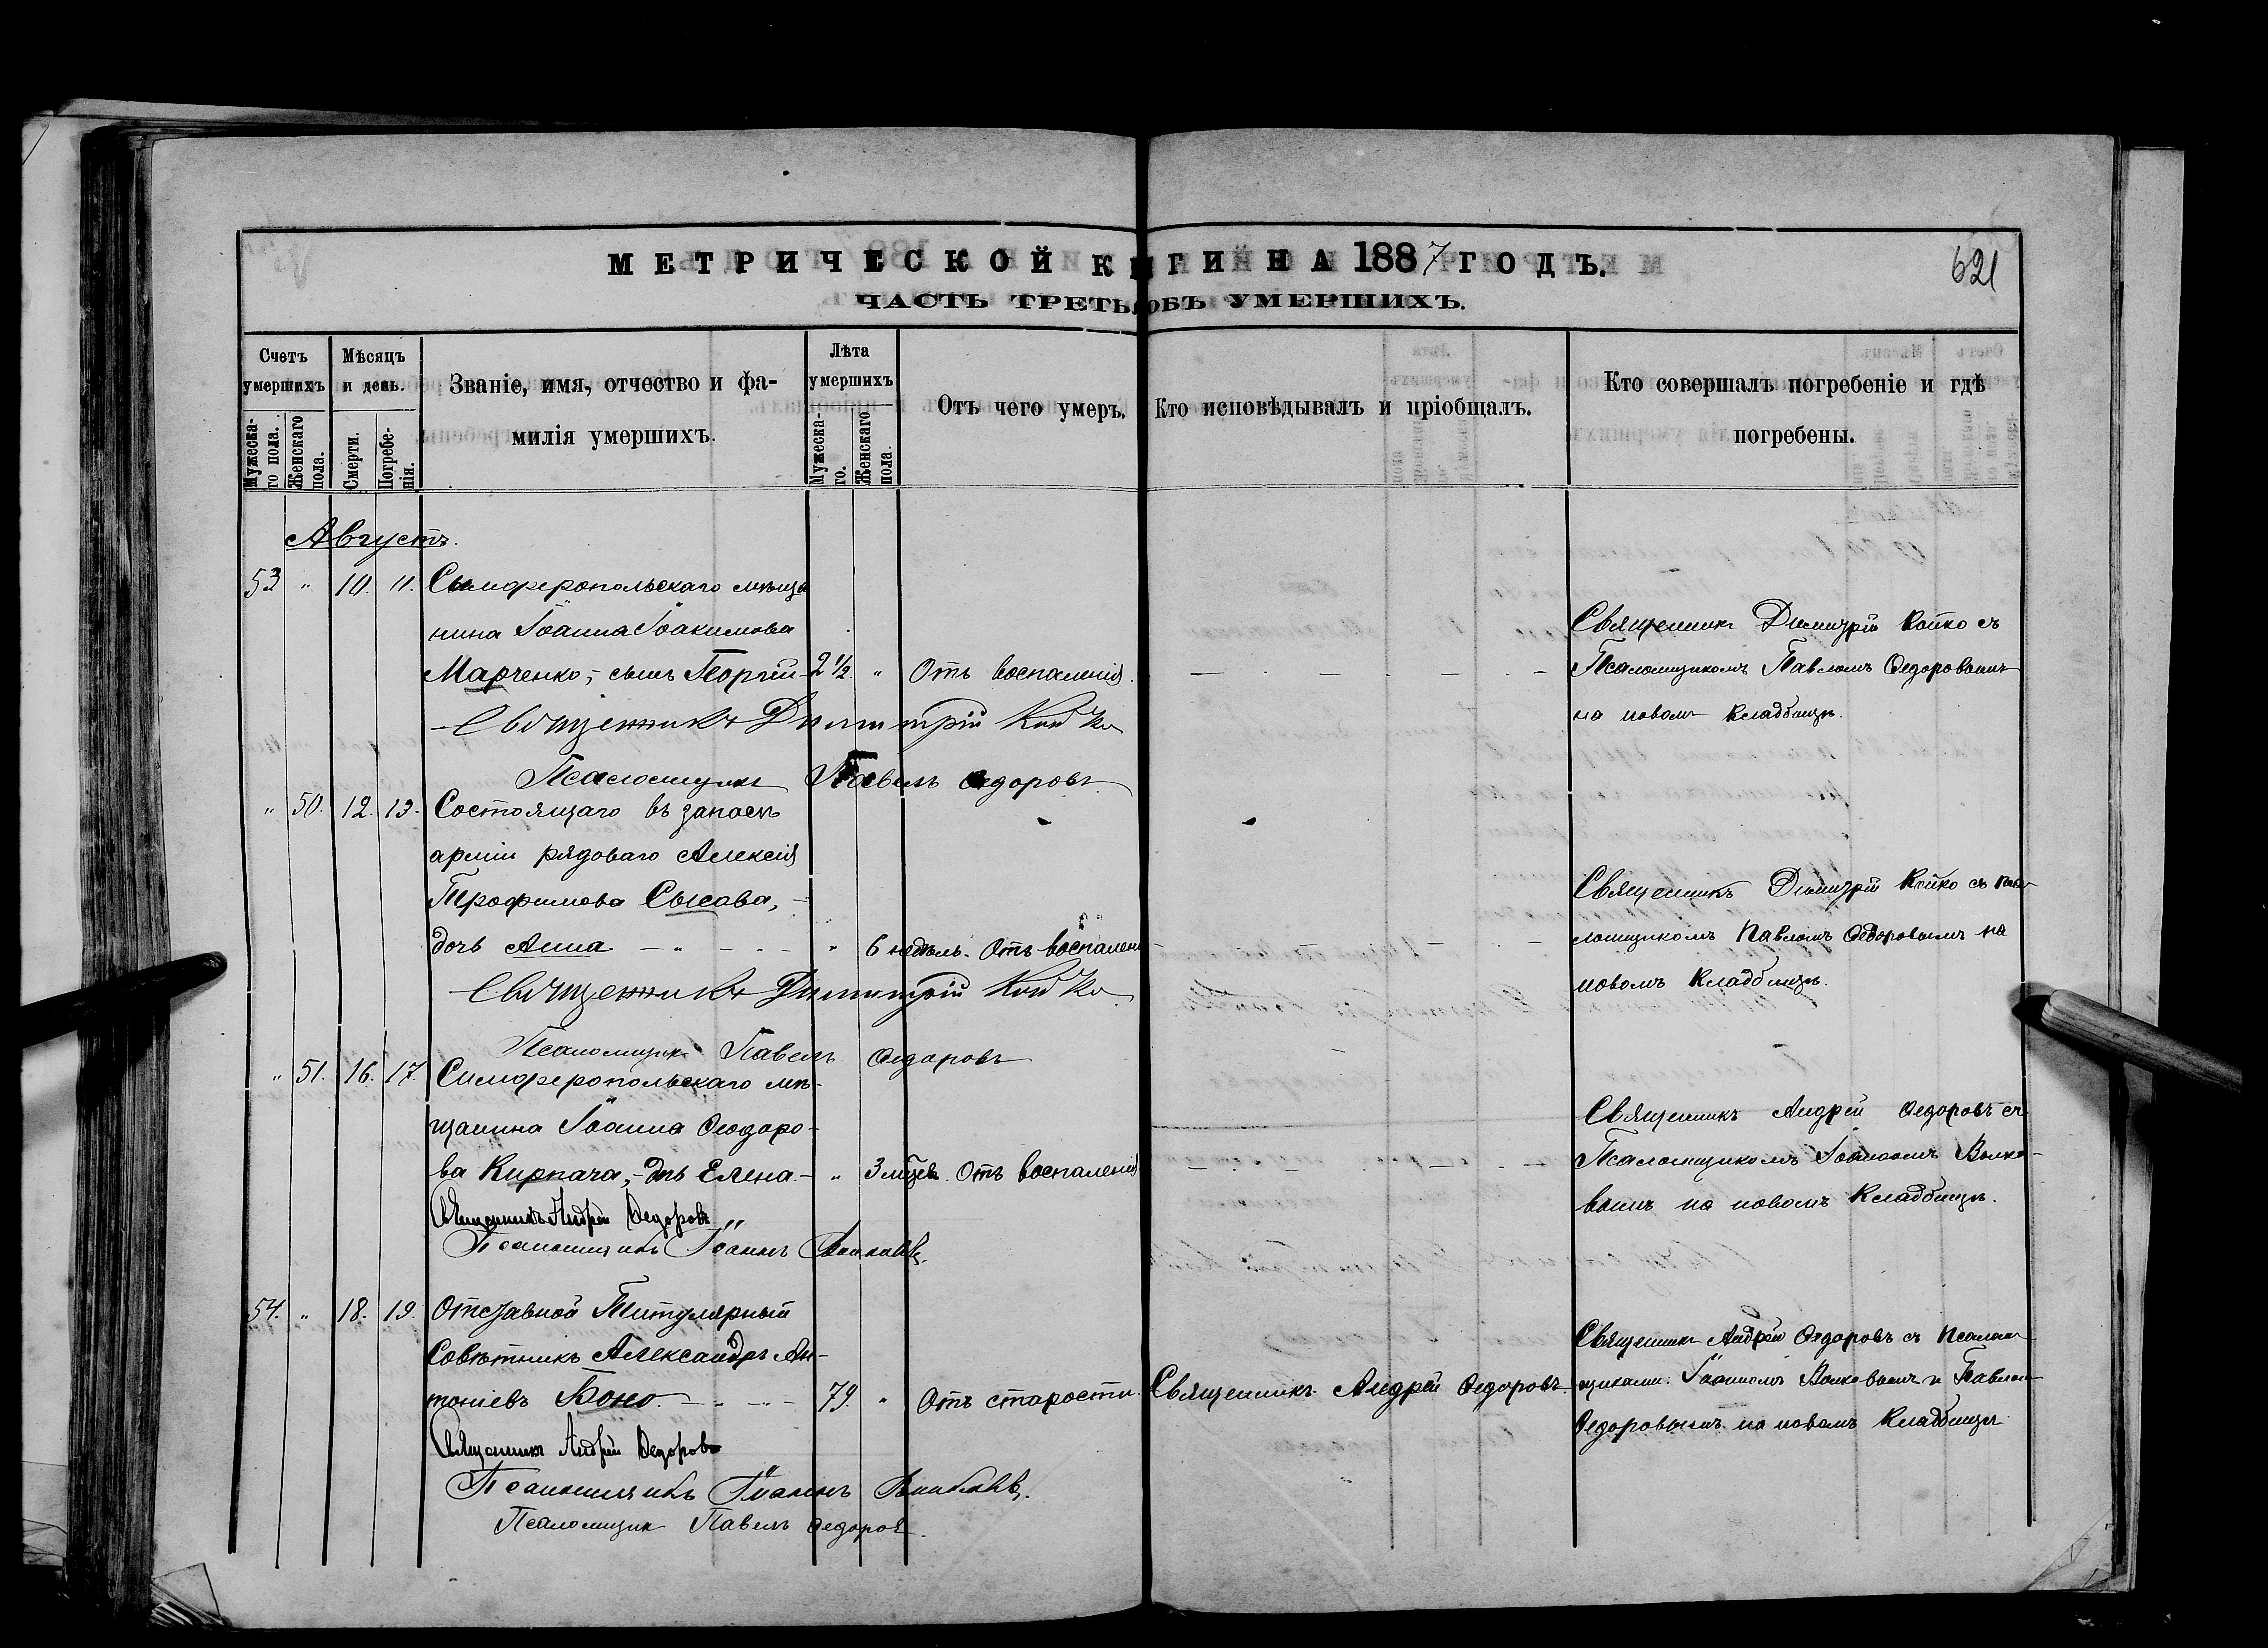 МЕТРИЧЕСКОЙ КНИГИ НА 1887 ГОДЪ.
621
ЧАСТЬ ТРЕТЬЯ ОБЪ УМЕРШИХЪ.
Счетъ умершихъ
Мужеска-го пола.
Женскаго пола.
Мѣсяцъ и день.
Смерти.
Погребе-нія.
Званіе, имя, отчество и фа-
милія умершихъ.
Лѣта умершихъ
Мужеска-го.
Женскаго пола.
Отъ чего умеръ.
Кто исповѣдывалъ и пріобщалъ.
Кто совершалъ погребеніе и гдѣ
погребены.
Августъ.
53 " 10. 11. Симферопольскаго мѣща
нина Іоанна Іоакимова
Марченко, - сынъ Георгій - 2 1/2. " Отъ воспаленія.
Священникъ Димитрій Койко съ
Псаломщикомъ Павломъ Ѳедоровымъ
на новомъ кладбищѣ.
Священникъ Димитрій Койко
Псаломщикъ Павелъ Ѳедоровъ
" 50. 12. 13. Состоящаго въ запасѣ
арміи рядоваго Алексія
Трофимова Сысова, -
дочь Анна - " - " 6 недѣль. Отъ воспален
Священникъ Димитрій Койко съ Пса-
ломщикомъ Павломъ Ѳедоровымъ на
новомъ Кладбищѣ.
Священникъ Димитрій Койко
Псаломщикъ Павелъ Ѳедоровъ
" 51. 16. 17. Симферопольскаго мѣ-
щанина Іоанна Ѳеодоро-
ва Кирпача, - дчь Елена. - " 3 мѣсев. Отъ воспаленія
Священникъ Андрей Ѳедоровъ съ
Псаломщикомъ Іоанномъ Волко-
вымъ на новомъ Кладбищѣ.
Священникъ Андрей Ѳедоровъ
Псаломщикъ Іоаннъ Волковъ.
54. " 18. 19. Отставной Титулярный
Совѣтникъ Александръ Ан-
тоніевъ Боно. - " - 79. " Отъ старости. Священникъ Андрей Ѳедоровъ.
Священникъ Андрей Ѳедоровъ съ Псалом
щиками: Іоанномъ Волковымъ и Павлом
Ѳедоровымъ на новомъ Кладбищѣ
Священникъ Андрей Ѳедоровъ
Псаломщикъ Іоаннъ Волковъ.
Псаломщик Павелъ Ѳедоров.